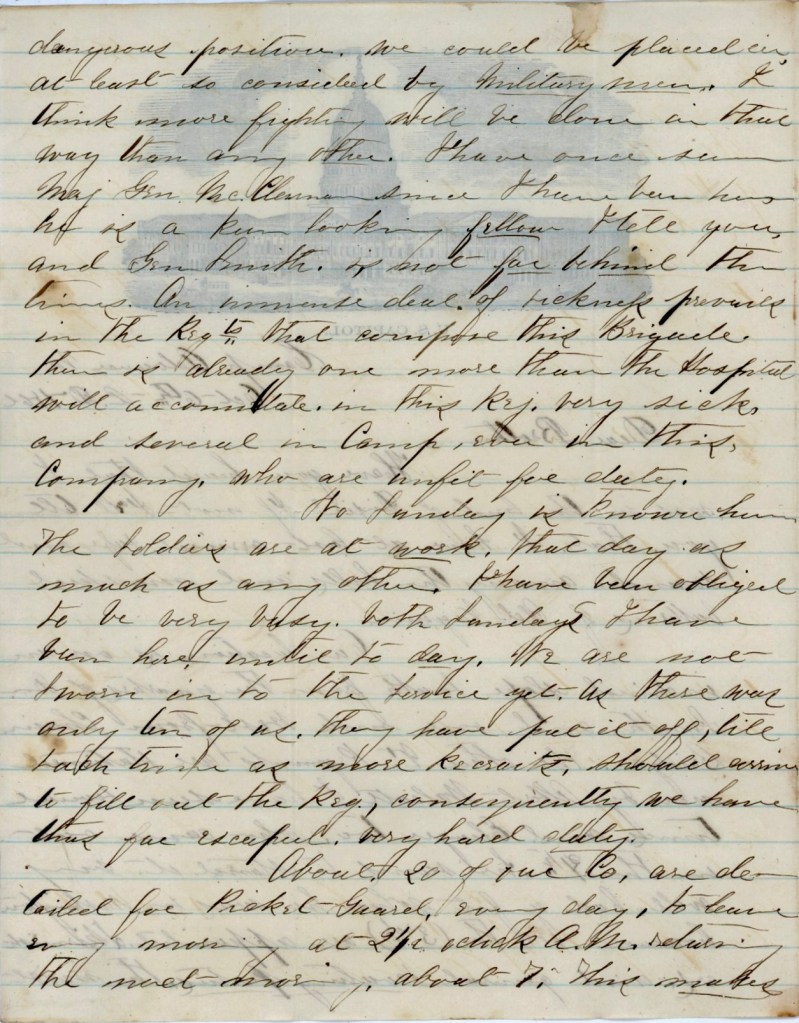 dangerous position. we could be placed in,
at least so consided by Military men. I
think more fighting will be done in that
way than any other. I have once seen
Maj Gen. Mc.Clennan since I have been here
he is a keen looking fellow I tell you,
and Gen Smith. is not far behind the
times. An immense deal of sickness prevails
in the Regts that compose this Brigade.
then is already one more than the Hospital
will accomdate. in this Reg. very sick,
and several in Camp, even in this,
Company, who are unfit for duty.
No Sunday is known here
The Soldiers are at work, that day as
much as any other. I have been obliged
to be very busy. both Sundays I have
been here, until to day. We are not
sworn in to the Service yet. As there was
only ten of us. they have put it off, till
such time as more Recruits, should arrive
to fill out the Reg., consequently we have
thus far escaped. very hard duty.
About 20 of our Co, are de-
tailed for Picket Guard, every day, to leave
every morning at 2 1/2 oclock A.M. returning
the next morning, about 7. This makes
U.S. CAPITOL